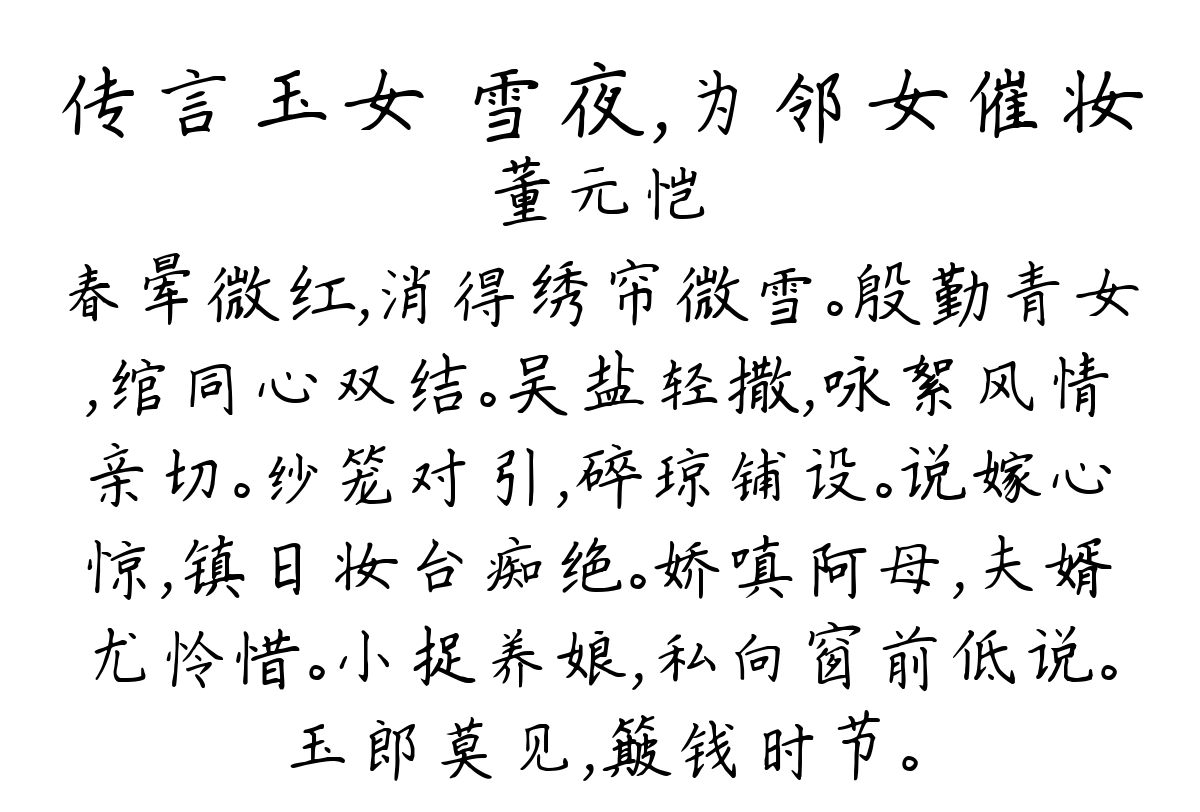 传言玉女 雪夜,为邻女催妆
董元恺
春晕微红,消得绣帘微雪。殷勤青女
,绾同心双结。吴盐轻撒,咏絮风情
亲切。纱笼对引,碎琼铺设。说嫁心
惊,镇日妆台痴绝。娇嗔阿母,夫婿
尤怜惜。小捉养娘,私向窗前低说。
玉郎莫见,簸钱时节。